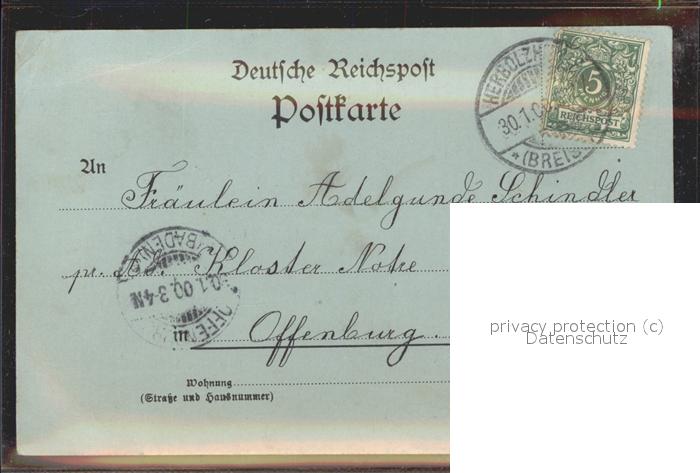 Deutsche Reichspost
Postkarte
HERBOLZH
30.1.00
*(BREIS
5
REICHSPOST
An
Fräulein Adelgunde Schindler
pr. Ad. Kloster Notre
Offenburg.
OFFE
(BADEN)
0.1.00.3-4N
in
Wohnung
(Straße und Hausnummer)
privacy protection (c)
Datenschutz